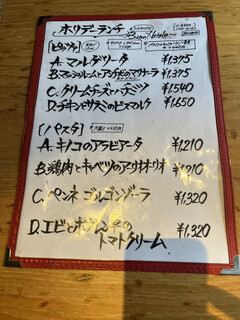 ホリデーランチ
[ピッツァ]
A. マルゲリータ ¥1,375
B. マッシュルームとアンチョビのマリナーラ ¥1,375
C. クリームチーズハチミツ ¥1,540
D. チキンとサラミのビスマルク ¥1,650
[パスタ]
A. キノコのアラビアータ ¥1,210
B. 鶏肉とキャベツのアーリオオーリオ ¥1,210
C. ペンネ ゴルゴンゾーラ ¥1,320
D. エビと
トマトクリーム ¥1,320